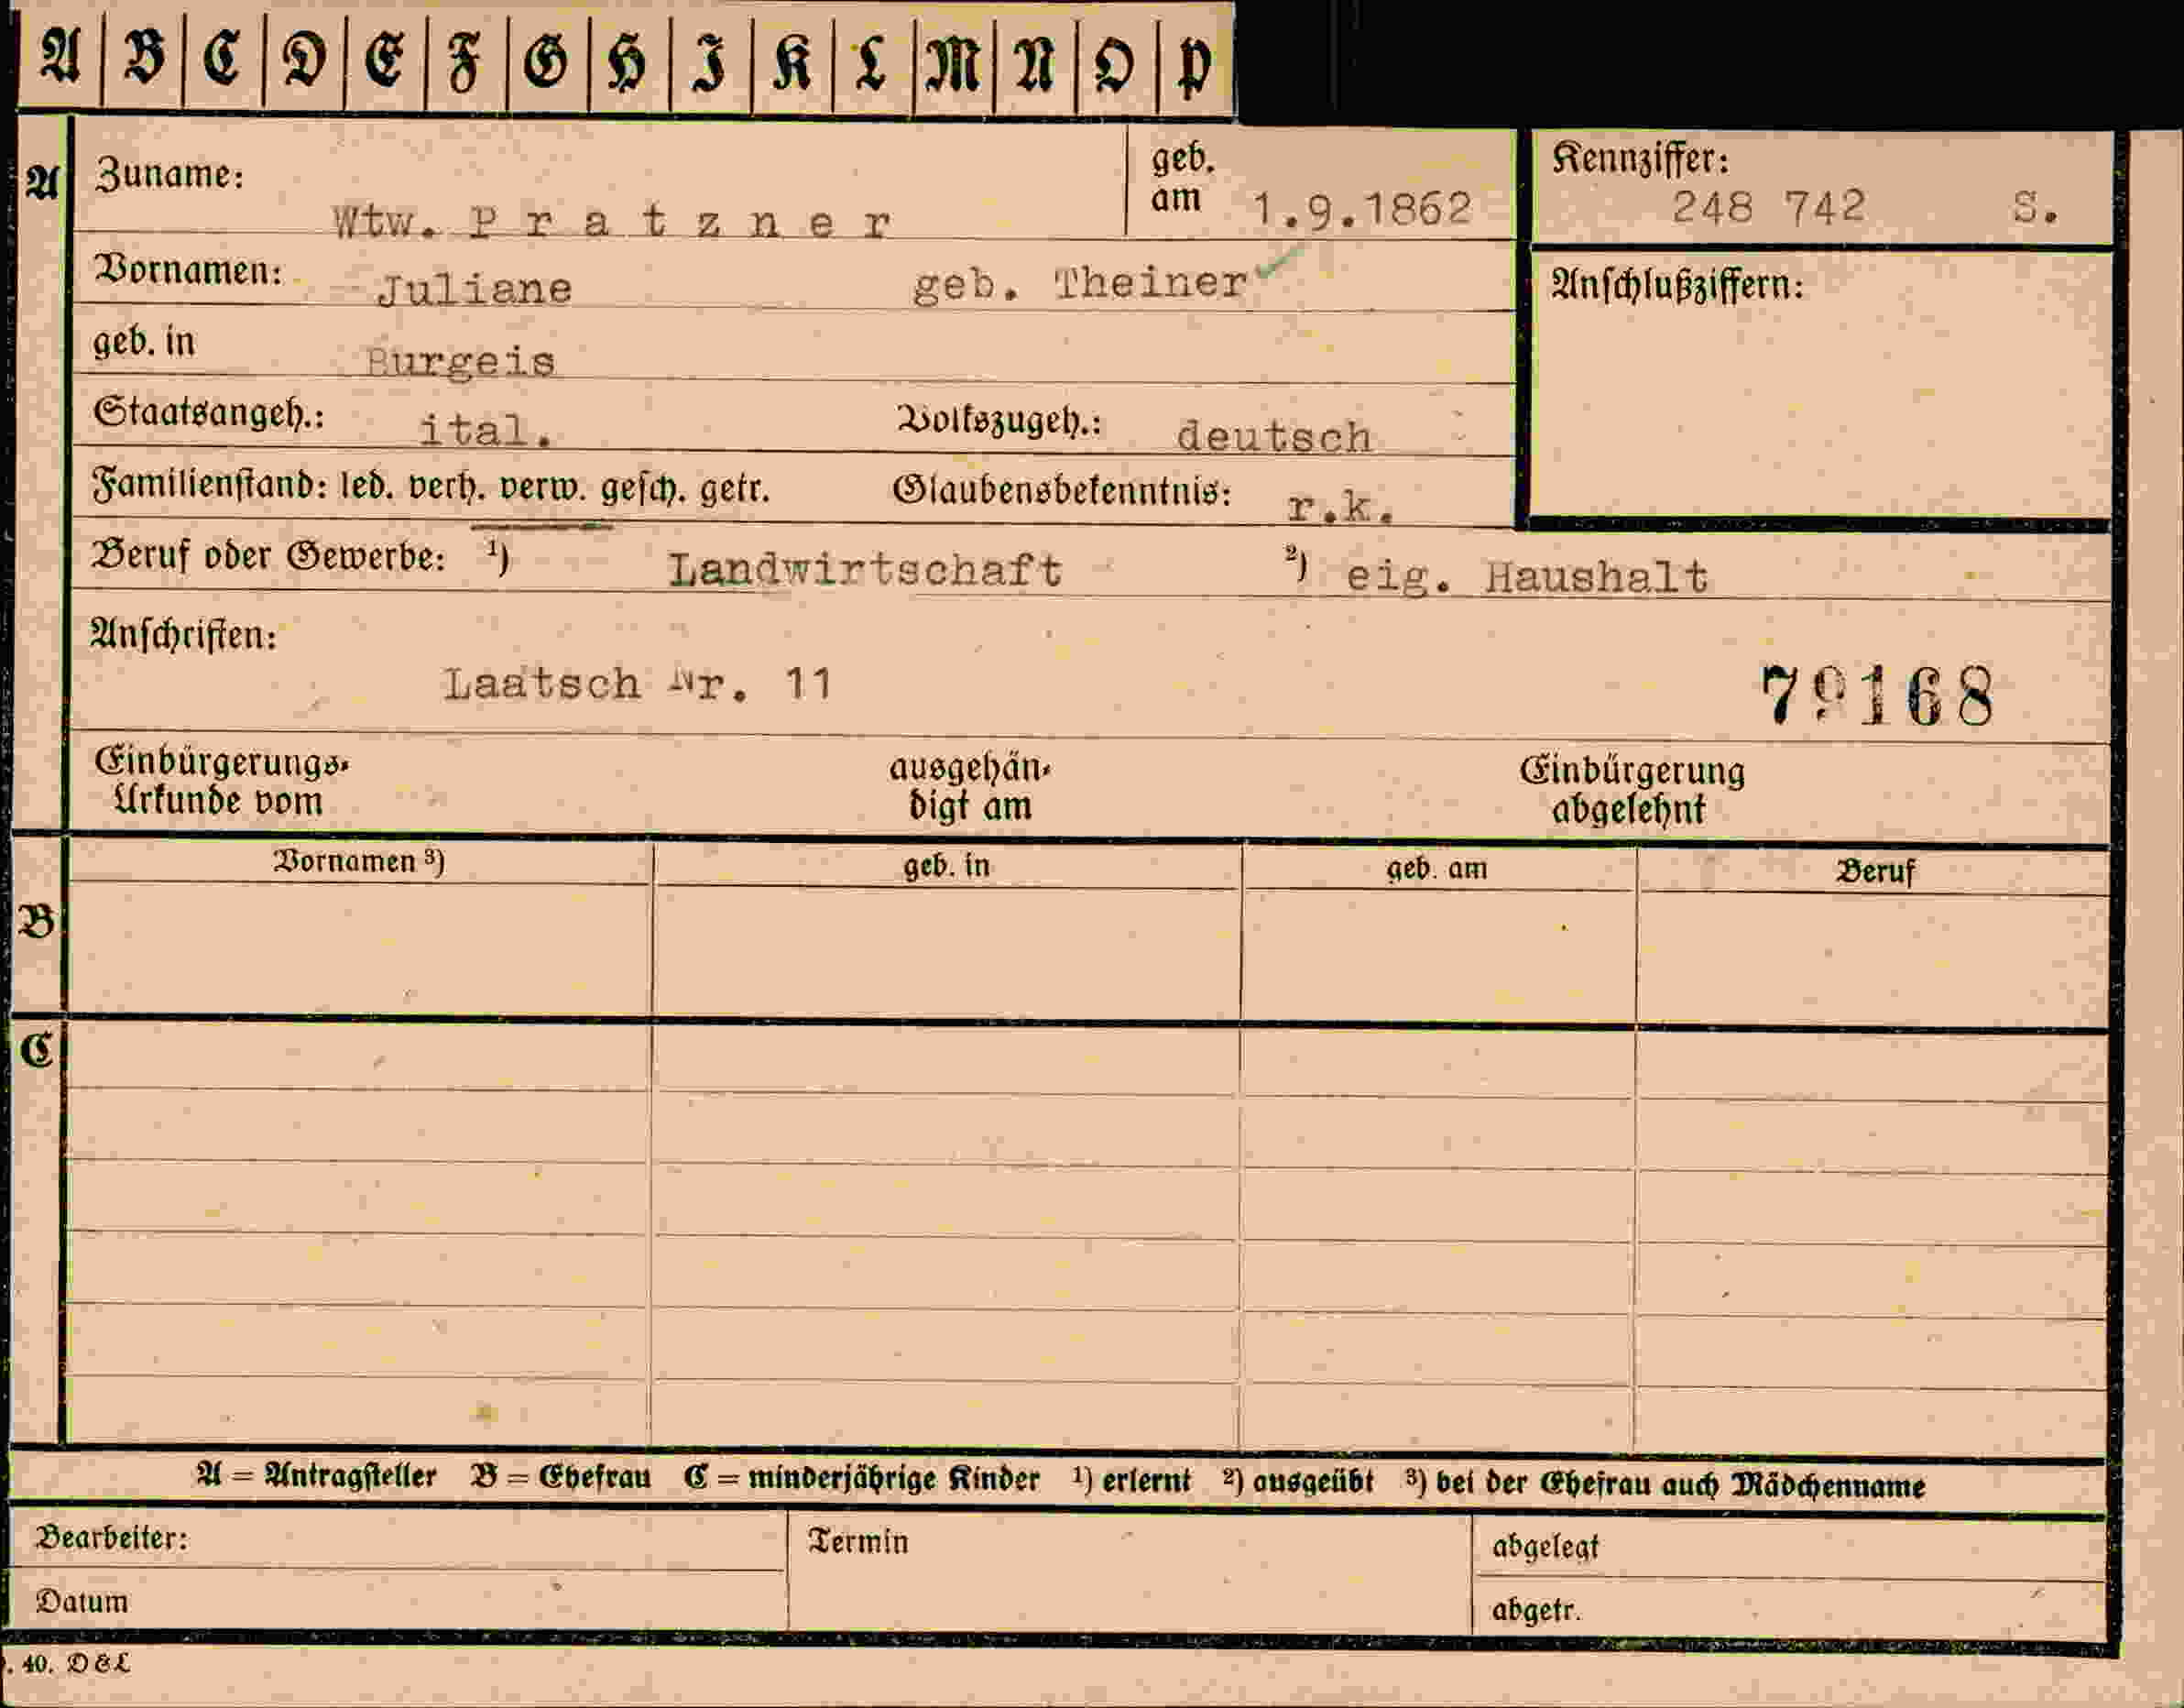 A B C D E F G H I K L M N O P
A Zuname: Wtw. P r a t z n e r geb. am 1.9.1862 Kennziffer: 248 742 S.
Vornamen: Juliane geb. Theiner ✓ Anschlußziffern:
geb. in Burgeis
Staatsangeh.: ital. Volkszugeh.: deutsch
Familienstand: led. verh. verw. gesch. getr. Glaubensbekenntnis: r.k.
Beruf oder Gewerbe: ¹) Landwirtschaft ²) eig. Haushalt
Anschriften:
Laatsch Nr. 11 79168
Einbürgerungs- ausgehän- Einbürgerung
Urkunde vom digt am abgelehnt
Vornamen ³) geb. in geb. am Beruf
B
C
A = Antragsteller B = Ehefrau C = minderjährige Kinder ¹) erlernt ²) ausgeübt ³) bei der Ehefrau auch Mädchenname
Bearbeiter: Termin abgelegt
Datum abgetr.
. 40. D&L